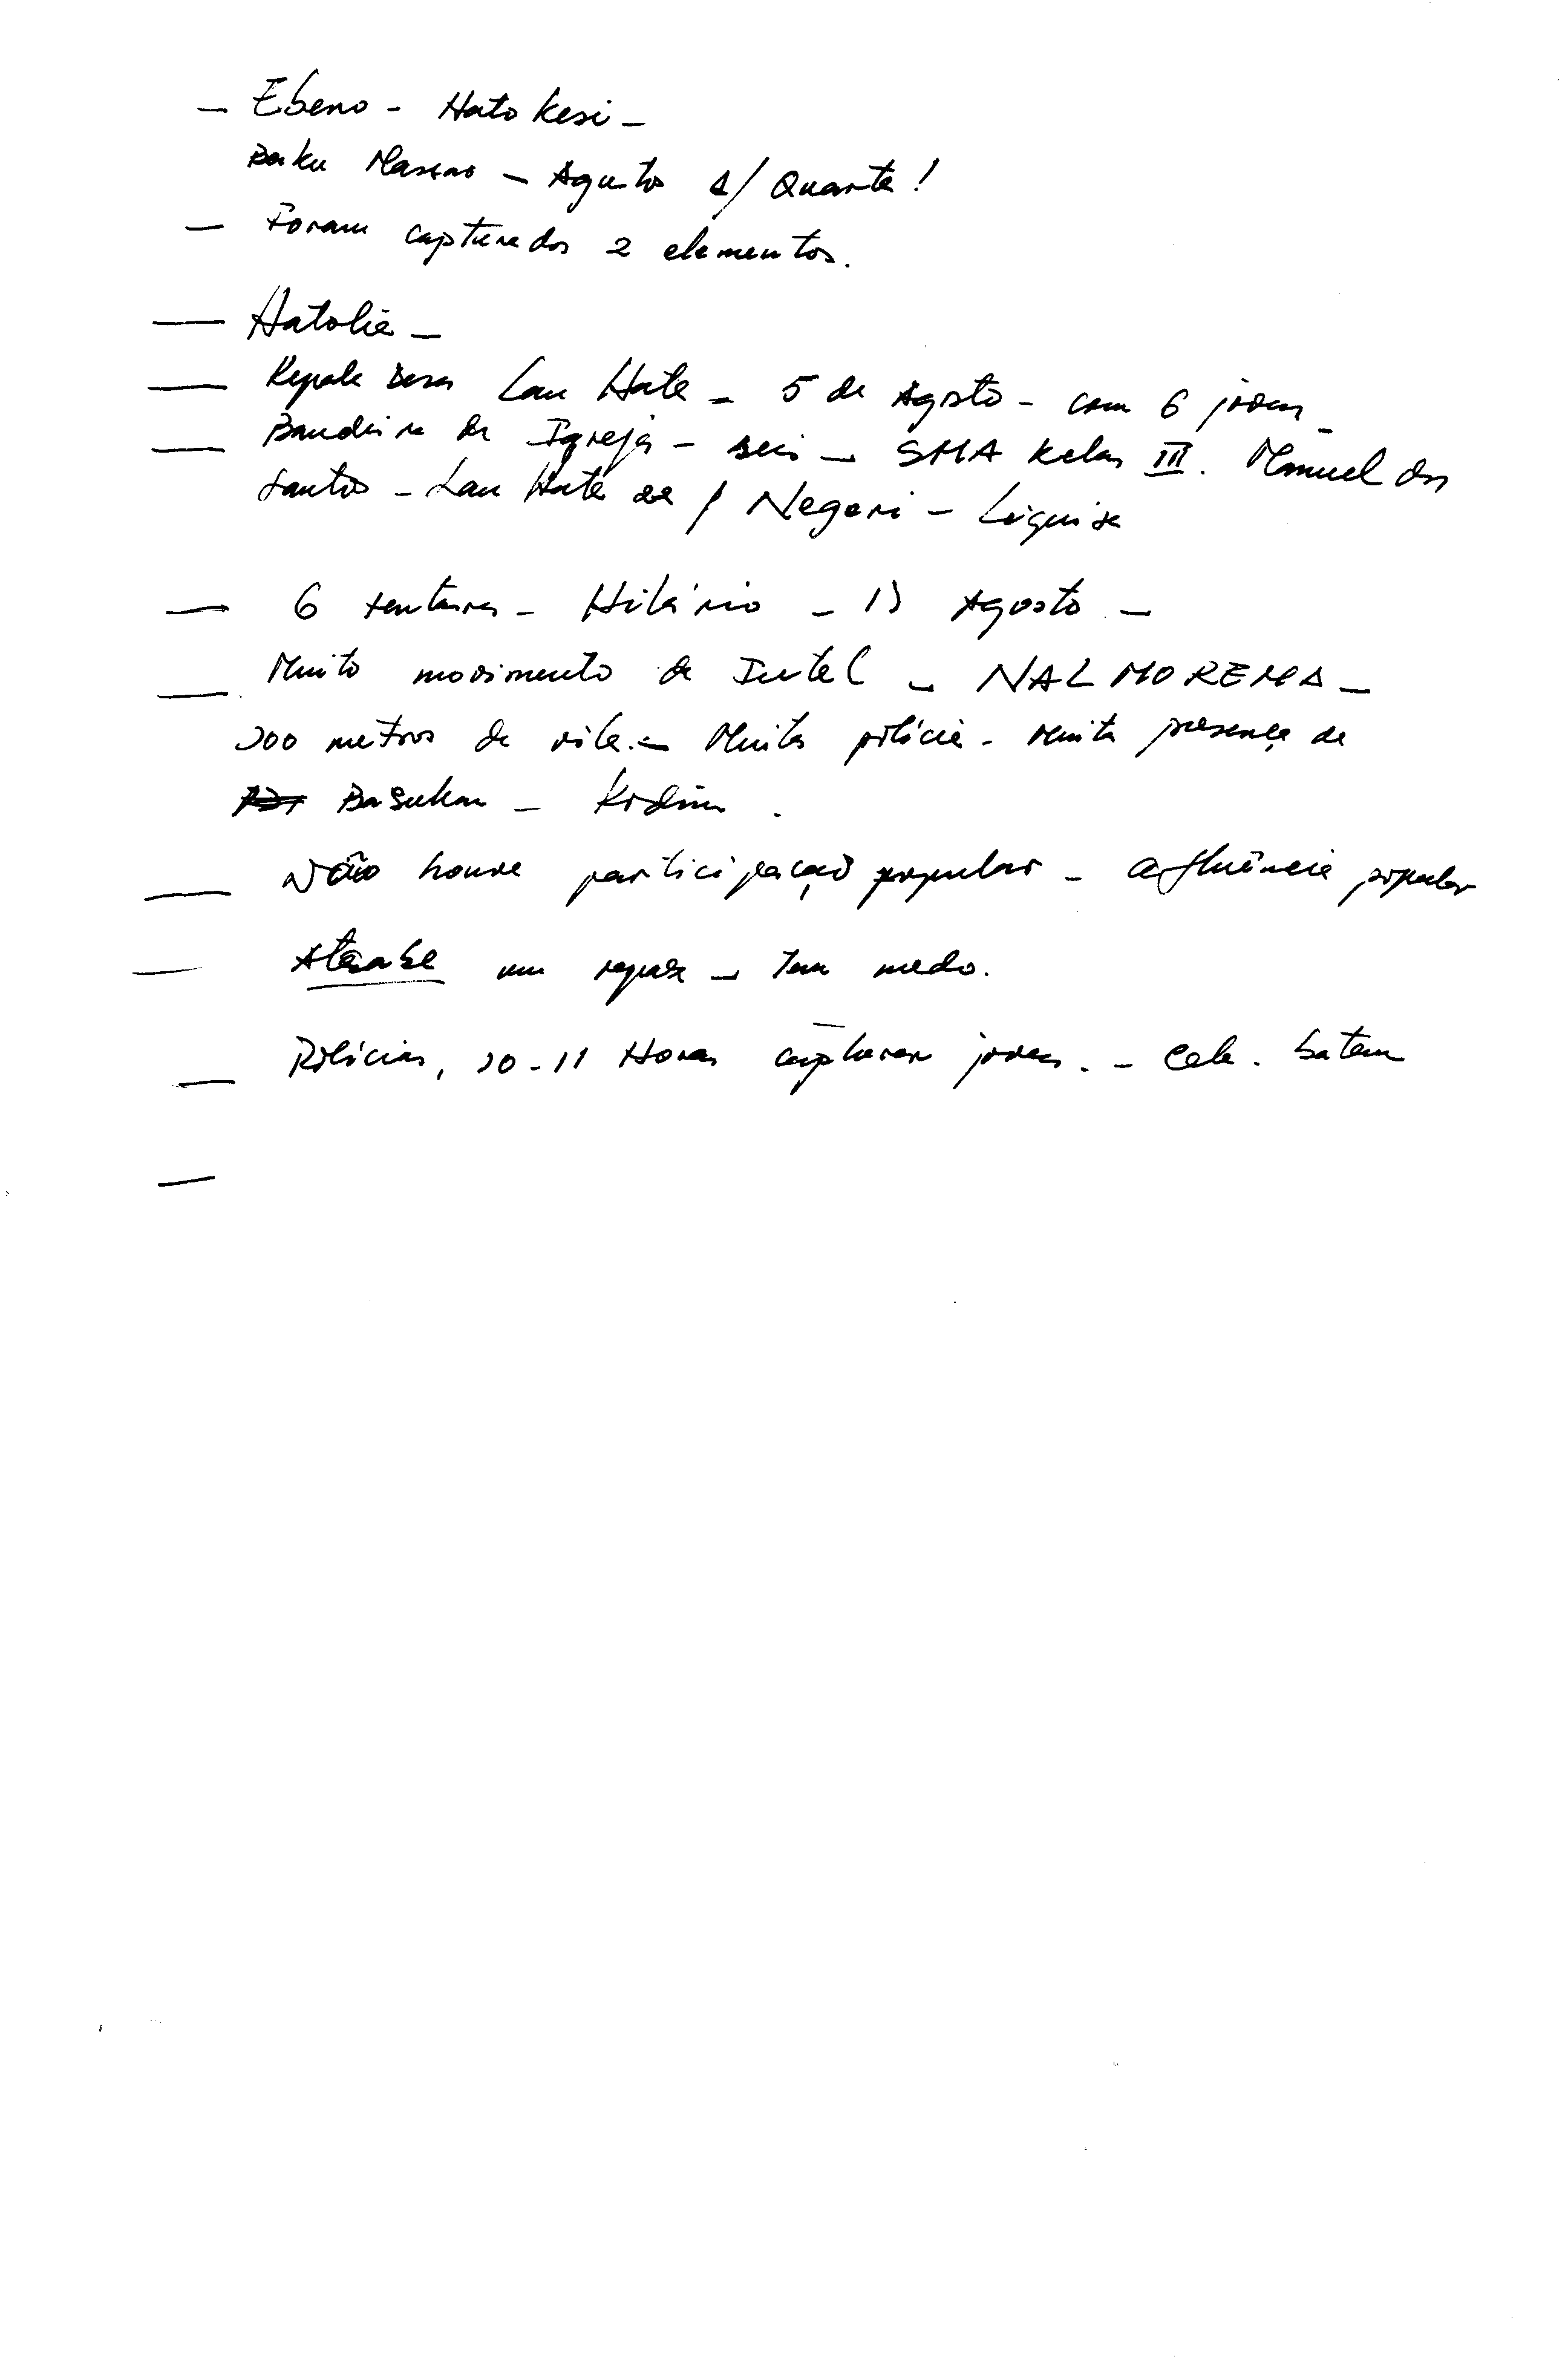 — Ebeno - Hato Kesi -
Baku Masino — Agusto 4/ Quarta!
— Foram capturados 2 elementos.
— Hatolia -
— Kepala Desa Lau Hata - 5 de Agosto - com 6 jovens -
— Bandeira da Igreja - seis - SMA Kelas III. Manuel dos
Santos - Lau Hata Negeri - Liquisa
— 6 - Hilário - 13 Agosto -
— Muito movimento de Intel - NAL MOREMA -
200 metros da vila. - Muita polícia - Muita presença de
Basukan - Kodim.
— Não houve participação popular - afluência popular
— Atsabe um rapaz - tem medo.
— Polícias, 10-11 Horas capturar jovens. - Cela. batem
—